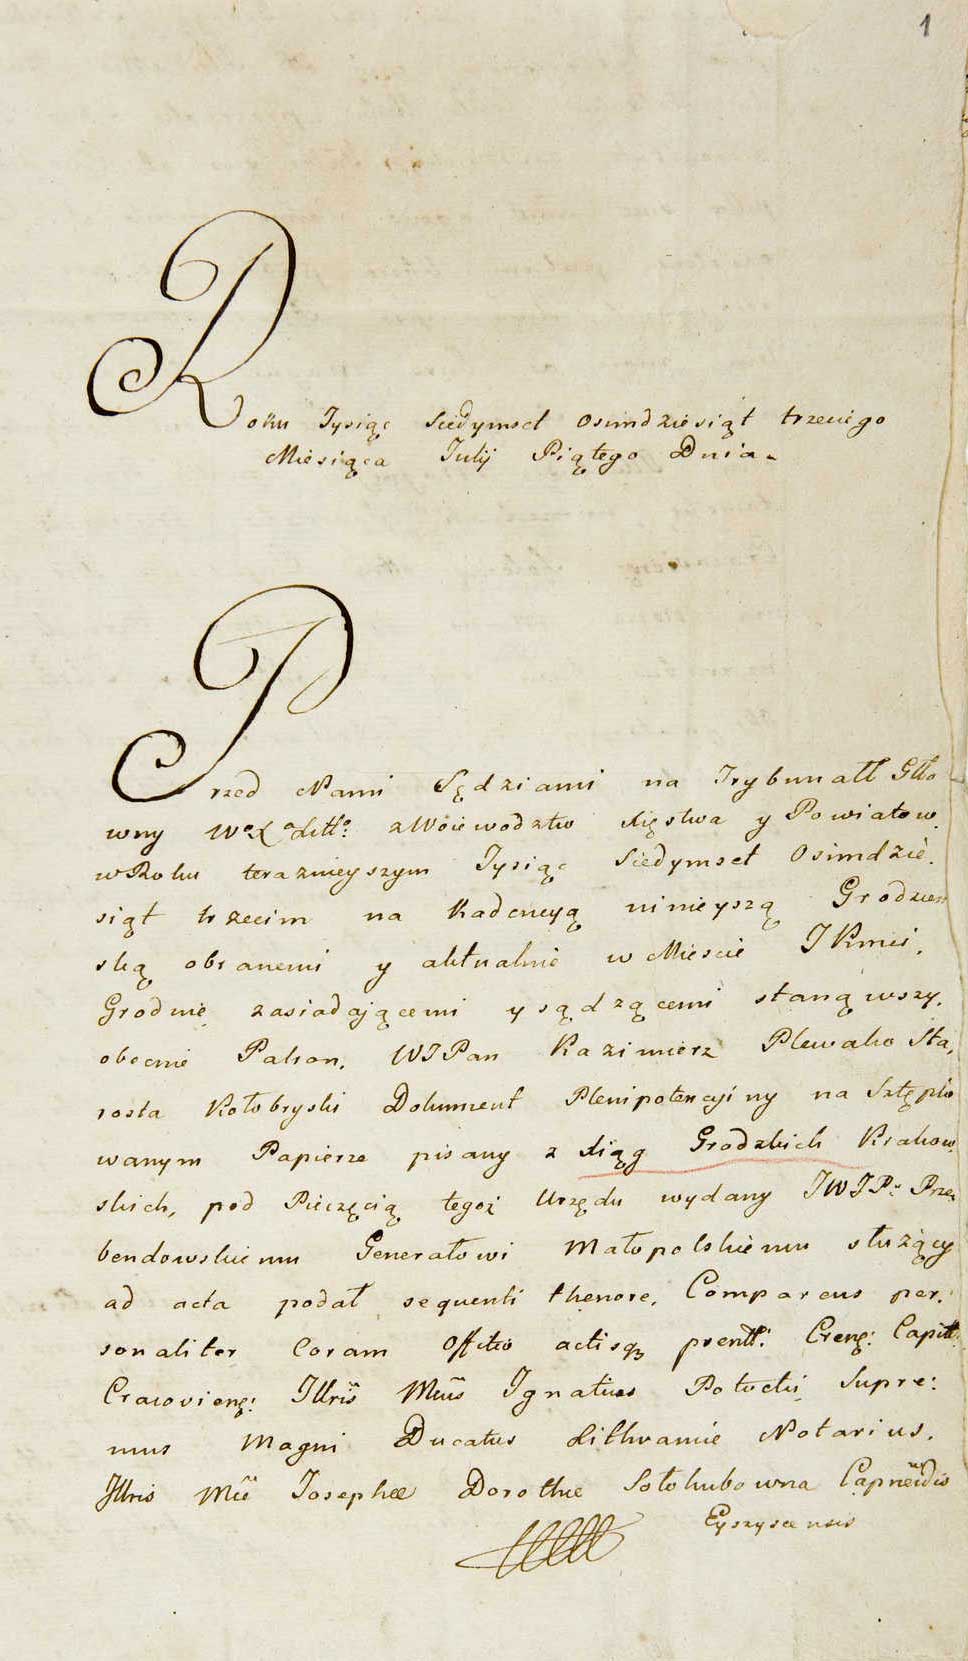 1
Roku Tysiąc Siedymset osimdziesiąt trzeciego
Miesiąca Julij Piątego Dnia.
Przed Nami Sędziami na Trybunałł Głło
wny Wo X o Litło: z Woiewodztw Xięstwa y Powiatow.
w Roku teraznieyszym Tysiąc Siedymset Osimdzie.
siąt trzecim na Kadencyą ninieyszą Grodzień
ską obranemi y aktualnie w Miescie JKmći.
Grodnie zasiadaiącemi y sądzącemi stanąwszy.
obecnie Patron. WJPan Kazimierz Plewako Sta,
rosta Kołobryski Dokument Plenipotencyiny na Sztęplo
wanym Papierze pisany z Xiąg Grodzkich Krakow.
skich, pod Pieczęcią tegoż Urzędu wydany JWJP: Prze,
bendowskiemu Generałowi Małopolskiemu służący
ad acta podał sequenti thenore. Comparens per:
sonaliter Coram Officio actisq prentt: Creng: Capitt:
Cracovieng: Illris Mnus Ignatius Potocki Supre:
mus Magni Ducatus Lithvanie Notarius.
Illris Mii Josephæ Dorothæ Sołohubowna
Eyszyscensis